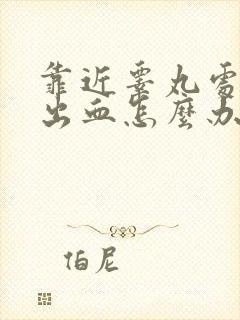 靠近睾丸處
出血怎麼办
伯尼